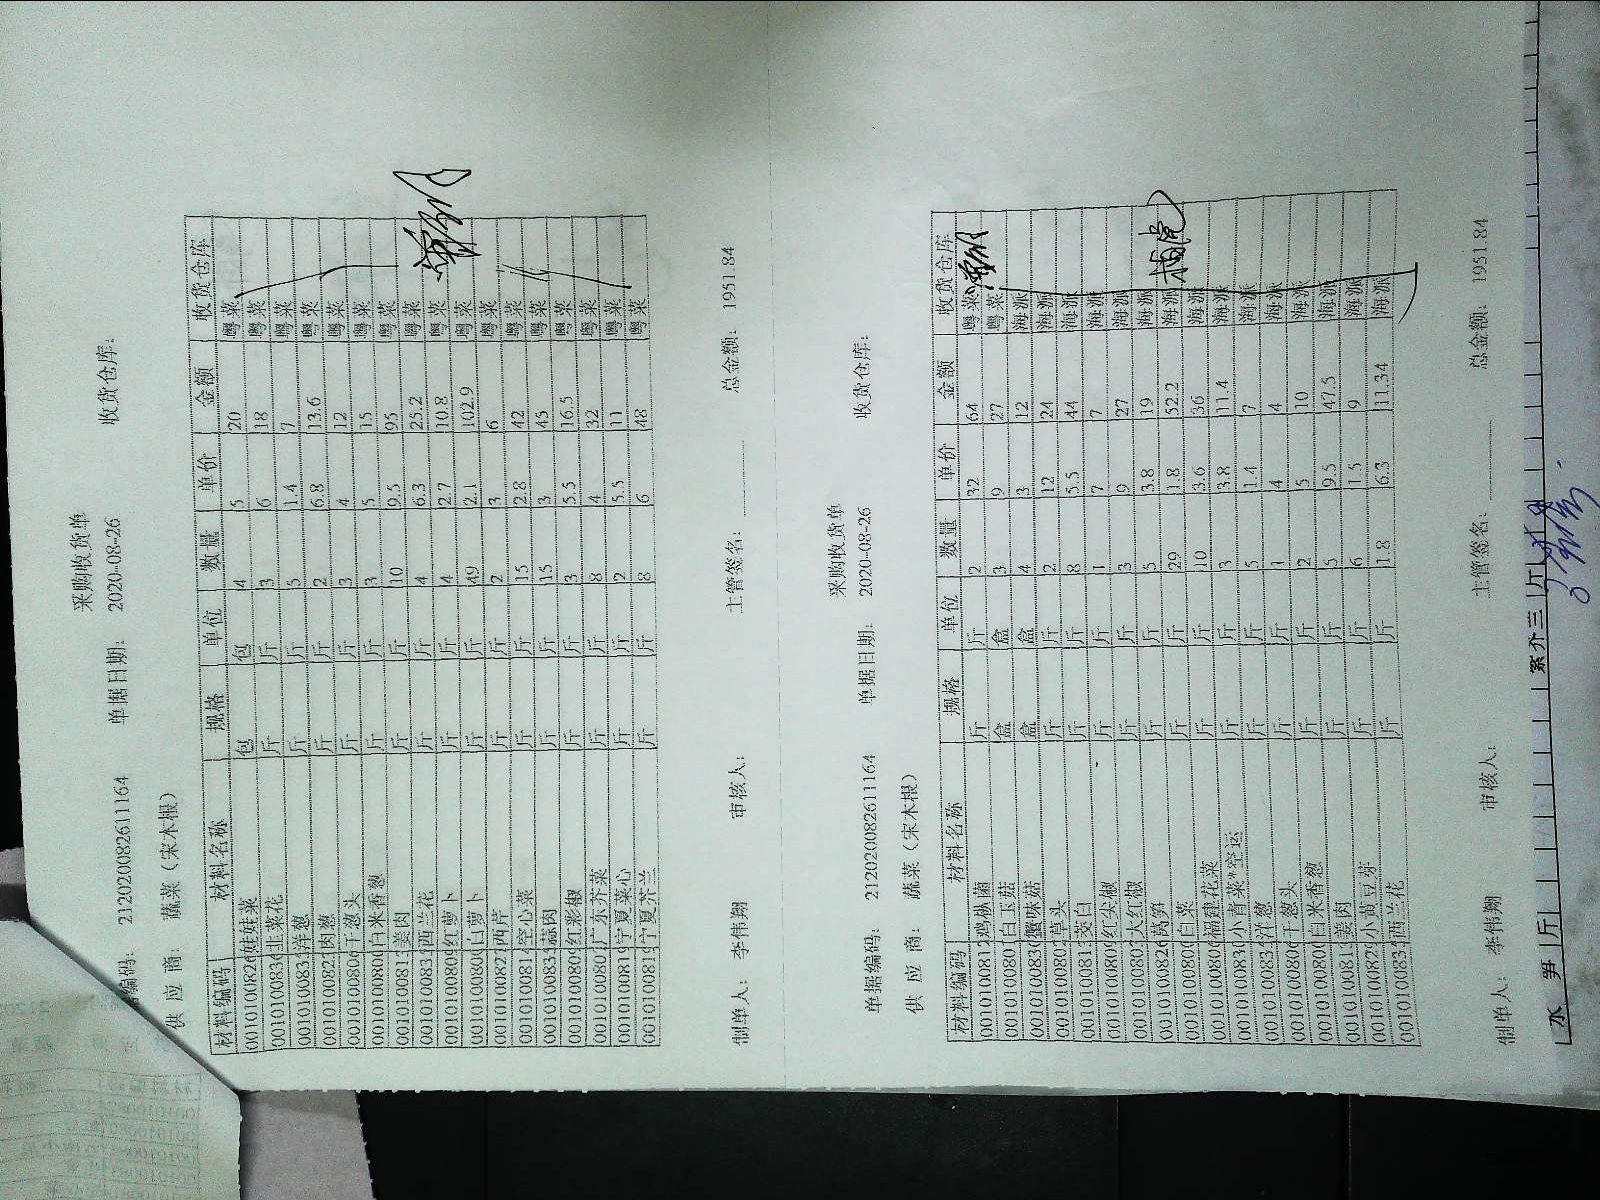 采购收货单
据编码： 21202008261​1164 单据日期： 2020-08-26 收货仓库：
供 应 商： 蔬菜（宋木根）
材料编码 材料名称 规格 单位 数量 单价 金额 收货仓库
0010100826 娃娃菜 包 包 4 5 20 粤菜
0010100836 韭菜花 斤 斤 3 6 18 粤菜
0010100832 洋葱 斤 斤 5 1.4 7 粤菜
0010100823 肉葱 斤 斤 2 6.8 13.6 粤菜
0010100806 干葱头 斤 斤 3 4 12 粤菜
0010100800 白米香葱 斤 斤 3 5 15 粤菜
0010100813 姜肉 斤 斤 10 9.5 95 粤菜
0010100831 西兰花 斤 斤 4 6.3 25.2 粤菜
0010100809 红萝卜 斤 斤 14 2.7 10.8 粤菜
0010100800 白萝卜 斤 斤 49 2.1 102.9 粤菜
0010100827 西芹 斤 斤 2 3 6 粤菜
0010100814 空心菜 斤 斤 15 2.8 42 粤菜
0010100834 蒜肉 斤 斤 15 3 45 粤菜
0010100809 红彩椒 斤 斤 3 5.5 16.5 粤菜
0010100807 广东芥菜 斤 斤 8 4 32 粤菜
0010100819 宁夏菜心 斤 斤 2 5.5 11 粤菜
0010100819 宁夏芥兰 斤 斤 8 6 48 粤菜
制单人： 李伟翔 审核人： 主管签名： 总金额： 1951.84
采购收货单
单据编码： 212020082611164 单据日期： 2020-08-26 收货仓库：
供 应 商： 蔬菜（宋木根）
材料编码 材料名称 规格 单位 数量 单价 金额 收货仓库
0010100812 鸡枞菌 斤 斤 2 32 64 粤菜
0010100801 白玉菇 盒 盒 3 9 27 粤菜
0010100830 蟹味菇 盒 盒 4 3 12 海派
0010100802 草头 斤 斤 2 12 24 海派
0010100813 茭白 斤 斤 8 5.5 44 海派
0010100809 红尖椒 斤 斤 1 7 7 海派
0010100803 大红椒 斤 斤 3 9 27 海派
0010100826 莴笋 斤 斤 5 3.8 19 海派
0010100800 白菜 斤 斤 29 1.8 52.2 海派
0010100806 福建花菜 斤 斤 10 3.6 36 海派
0010100830 小青菜*空运 斤 斤 3 3.8 11.4 海派
0010100832 洋葱 斤 斤 5 1.4 7 海派
0010100806 干葱头 斤 斤 1 4 4 海派
0010100800 白米香葱 斤 斤 2 5 10 海派
0010100813 姜肉 斤 斤 5 9.5 47.5 海派
0010100829 小黄豆芽 斤 斤 6 1.5 9 海派
0010100831 西兰花 斤 斤 1.8 6.3 11.34 海派
制单人： 李伟翔 审核人： 主管签名： 总金额： 1951.84
水 笋 斤